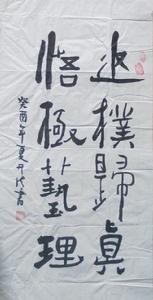 返樸歸真
悟極藝理
癸酉年夏月沈書